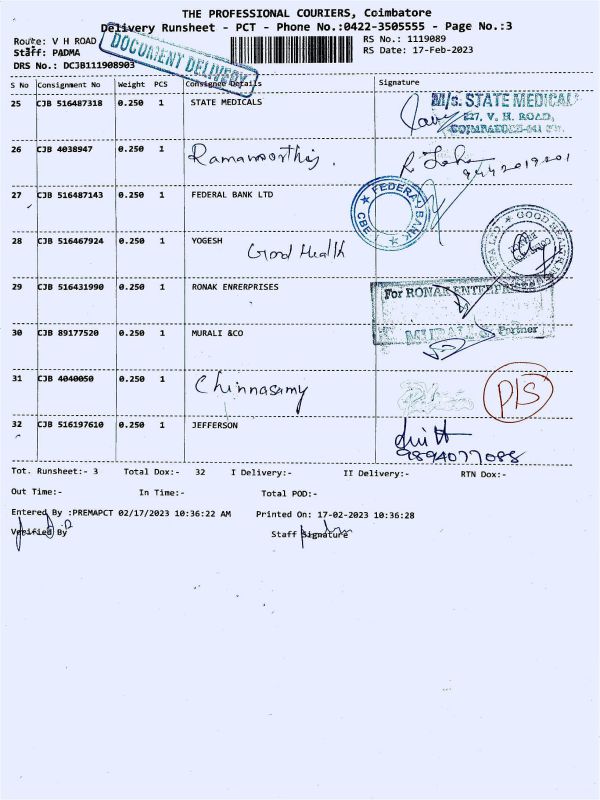 THE PROFESSIONAL COURIERS, Coimbatore
Delivery Runsheet - PCT - Phone No.:0422-3505555 - Page No.:3
Route: V H ROAD
RS No.: 1119089
Staff: PADMA
RS Date: 17-Feb-2023
DRS No.: DCJB111908903
DOCUMENT DELIVERY
S No Consignment No Weight PCS Consignee Details Signature
25 CJB 516487318 0.250 1 STATE MEDICALS
M/s. STATE MEDICAL
V. H. ROAD,
26 CJB 4038947 0.250 1 Ramamoorthy.
9442019201
27 CJB 516487143 0.250 1 FEDERAL BANK LTD
FEDERAL BANK
CBE
28 CJB 516467924 0.250 1 YOGESH
Good Health
GOOD HEALTH
29 CJB 516431990 0.250 1 RONAK ENRERPRISES
For RONAK ENTERPRISES
Partner
30 CJB 89177520 0.250 1 MURALI &CO
31 CJB 4040050 0.250 1 Chinnasamy
P/S
32 CJB 516197610 0.250 1 JEFFERSON
9894077088
Tot. Runsheet:- 3 Total Dox:- 32 I Delivery:- II Delivery:- RTN Dox:-
Out Time:- In Time:- Total POD:-
Entered By :PREMAPCT 02/17/2023 10:36:22 AM Printed On: 17-02-2023 10:36:28
Verified By Staff Signature